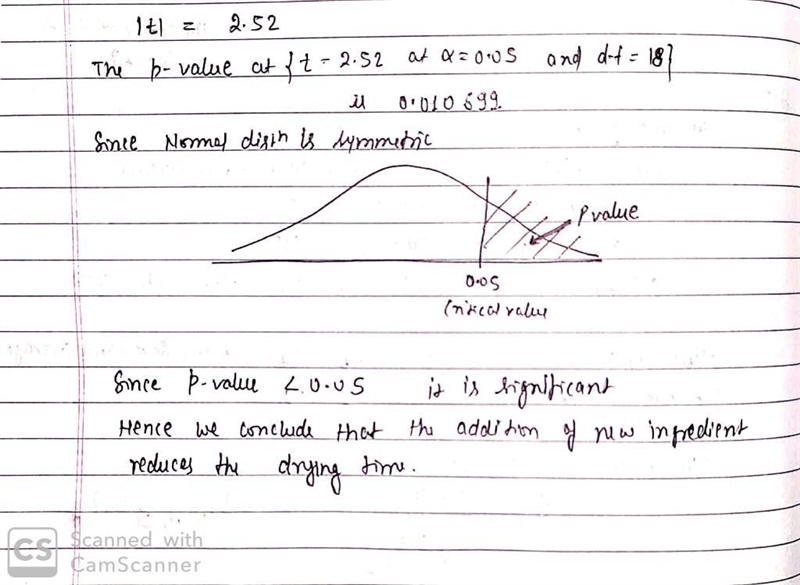 |t| = 2.52
The p-value at {t = 2.52 at α = 0.05 and d.f = 18}
is 0.010699
Since Normal distn is symmetric
P value
0.05
Critical value
Since p-value < 0.05 it is significant
Hence we conclude that the addition of new ingredient
reduces the drying time.
CS Scanned with
CamScanner